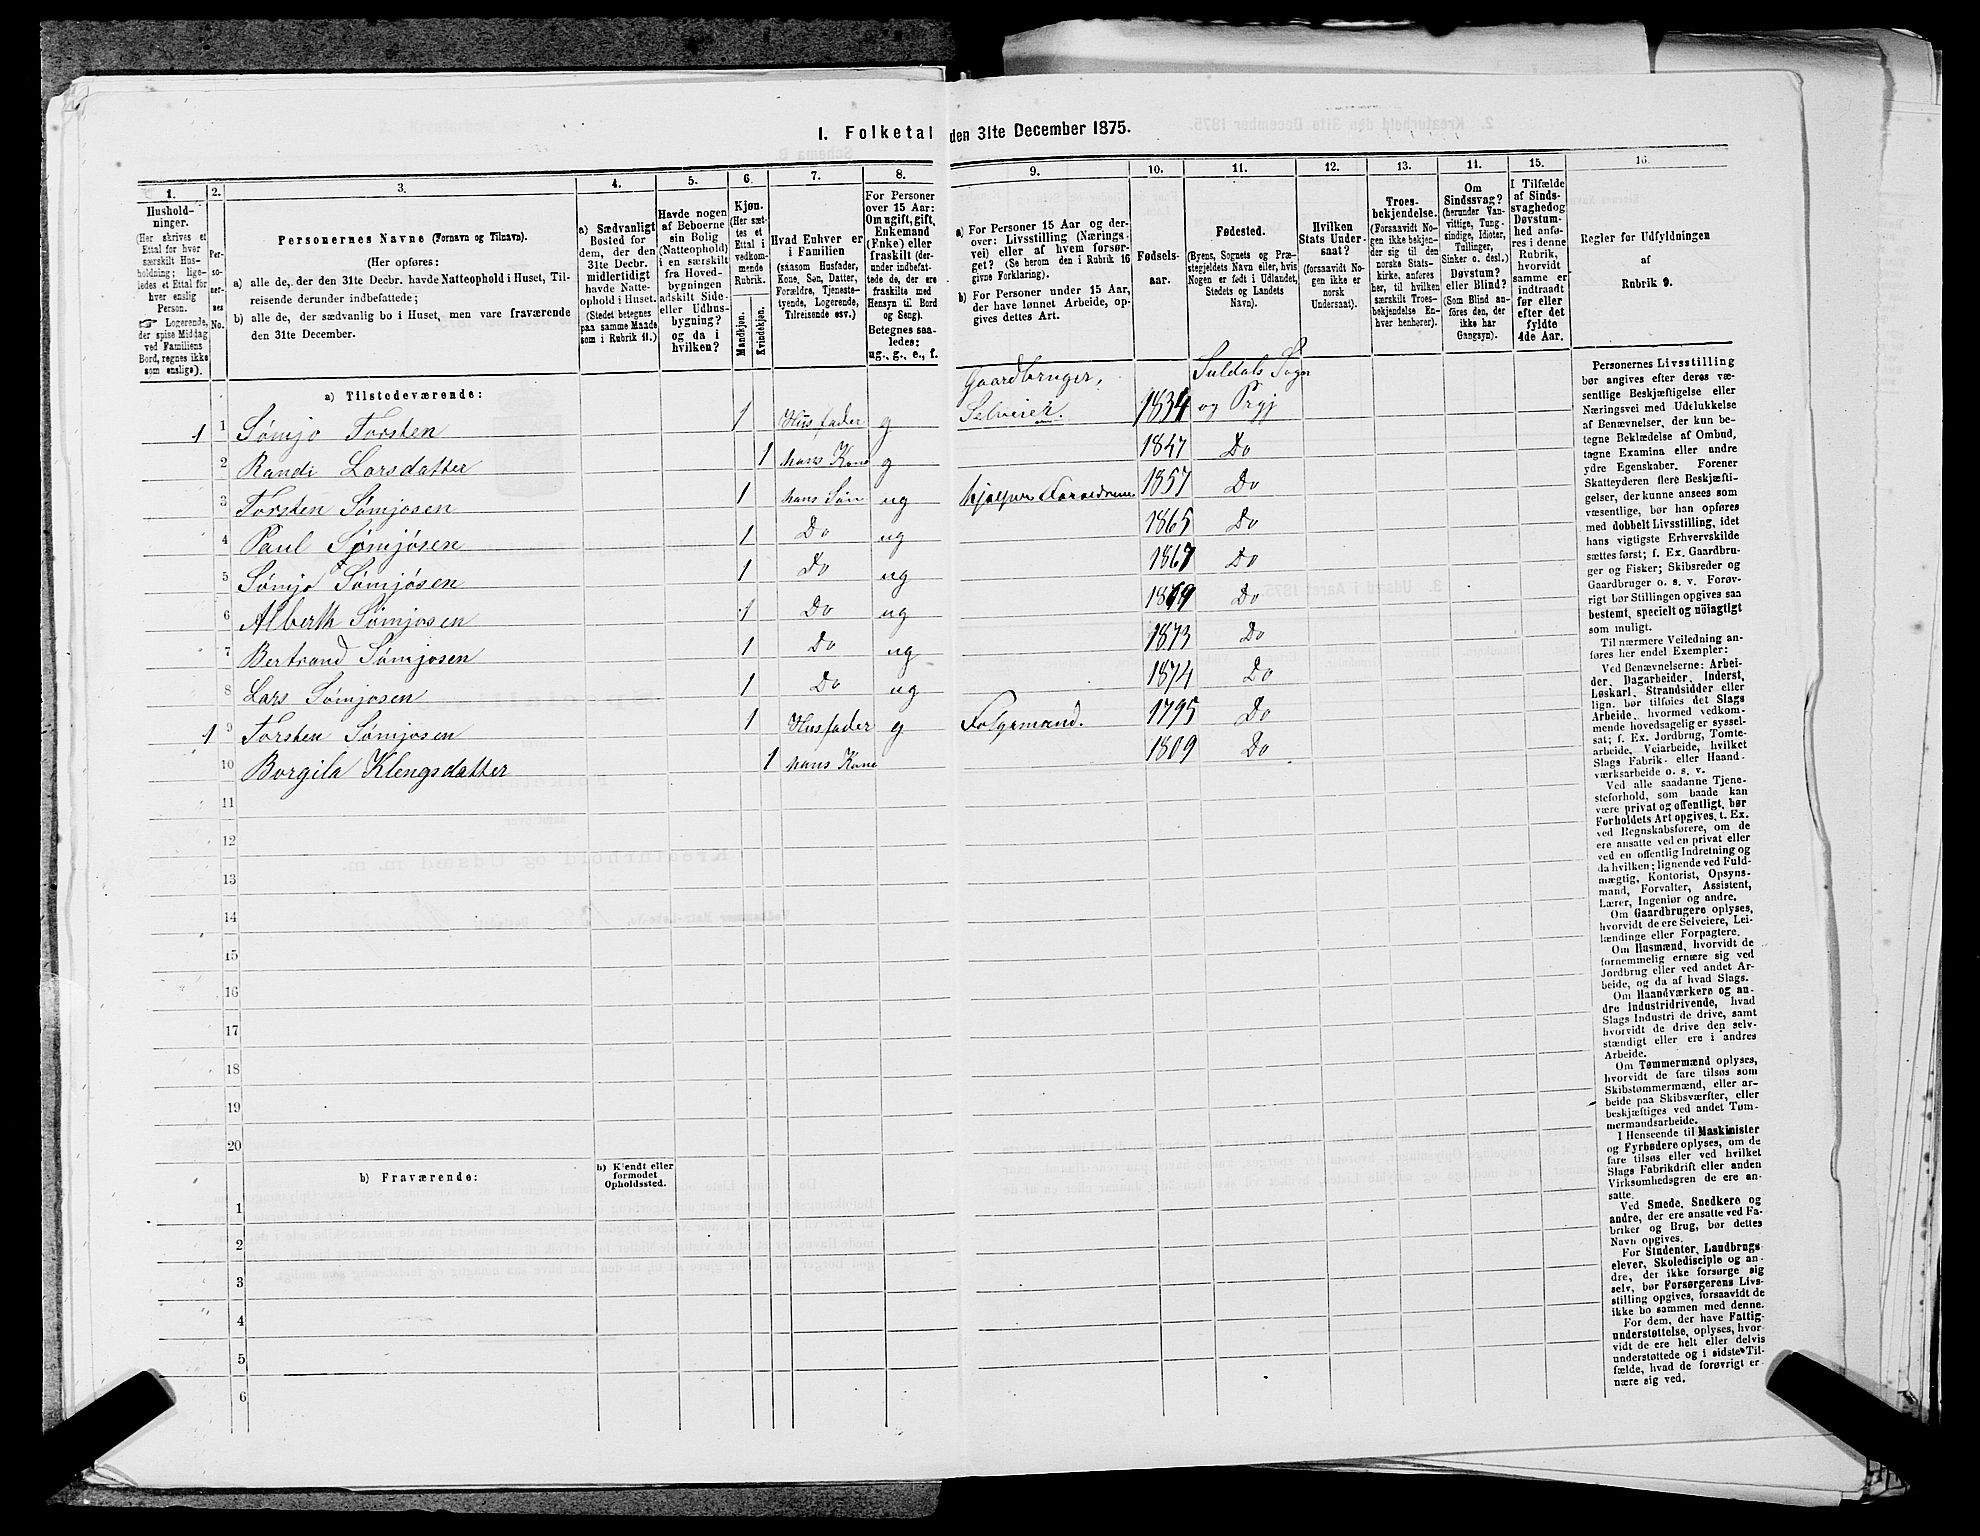 I. Folketal den 31te December 1875.
1. 2. 3. 4. 5. 6. 7. 8. 9. 10. 11. 12. 13. 11. 15. 16.
Hushold-
ninger.
(Her skrives et
Ettal for hver
særskilt Hus-
holdning; lige-
ledes et Ettal for
hver enslig
Person.
☞ Logerende,
der spise Middag
ved Familiens
Bord, regnes ikke
som enslige).
Per-
so-
ner-
nes
No.
Personernes Navne (Fornavn og Tilnavn).
(Her opføres:
a) alle de, der den 31te Decbr. havde Natteophold i Huset, Til-
reisende derunder indbefattede;
b) alle de, der sædvanlig bo i Huset, men vare fraværende
den 31te December.
a) Sædvanligt
Bosted for
dem, der den
31te Decbr.
midlertidigt
havde Natte-
ophold i Huset.
(Stedet betegnes
paa samme Maade
som i Rubrik 11.)
Havde nogen
af Beboerne
sin Bolig
(Natteophold)
i en særskilt
fra Hoved-
bygningen
adskilt Side-
eller Udhus-
bygning?
og da i
hvilken?
Kjøn.
(Her sæt-
tes et
Ettal i
vedkom-
mende
Rubrik.
Mandkjøn.
Kvindekjøn.
Hvad Enhver er
i Familien
(saasom Husfader,
Kone, Søn, Datter,
Forældre, Tjeneste-
tyende, Logerende,
Tilreisende osv.)
For Personer
over 15 Aar:
Om ugift, gift,
Enkemand
(Enke) eller
fraskilt (der-
under indbefat-
tede de, der ere
fraskilte med
Hensyn til Bord
og Seng).
Betegnes saa-
ledes:
ug., g., e., f.
a) For Personer 15 Aar og der-
over: Livsstilling (Nærings-
vei) eller af hvem forsør-
get? (Se herom den i Rubrik 16
givne Forklaring).
b) For Personer under 15 Aar,
der have lønnet Arbeide, op-
gives dettes Art.
Fødsels-
aar.
Fødested.
(Byens, Sognets og Præ-
stegjeldets Navn eller, hvis
Nogen er født i Udlandet,
Stedets og Landets
Navn).
Hvilken
Stats Under-
saat?
(forsaavidt No-
gen ikke er
norsk
Undersaat).
Troes-
bekjendelse.
(Forsaavidt No-
gen ikke bekjen-
der sig til den
norske Stats-
kirke, anføres
her, til hvilken
særskilt Troes-
bekjendelse En-
hver henhører).
Om
Sindssvag?
(herunder Van-
vittige, Tung-
sindige, Idioter,
Tullinger,
Sinker o. desl.)
Døvstum?
eller Blind?
(Som Blind an-
føres den, der
ikke har
Gangsyn).
I Tilfælde
af Sinds-
svaghed og
Døvstum-
hed anfø-
res i denne
Rubrik,
hvorvidt
samme er
indtraadt
før eller
efter det
fyldte
4de Aar.
Regler for Udfyldningen
af
Rubrik 9.
a) Tilstedeværende:
Gaardbruger, Suldals Sogn
1 1 Sømjo Torsten 1 Husfader g Selveier. 1834 og Prgj
2 Randi Larsdatter 1 hans Kone g 1847 Do
3 Torsten Sømjosen 1 hans Søn ug hjælper Forældrene 1857 Do
4 Paul Sømjøsen 1 Do ug 1865 Do
5 Sømjo Sømjøsen 1 Do ug 1867 Do
6 Alberth Sømjosen 1 Do ug 1869 Do
7 Bertrand Sømjosen 1 Do ug 1873 Do
8 Lars Sømjosen 1 Do ug 1874 Do
1 9 Torsten Sømjosen 1 Husfader g Folgemand. 1795 Do
10 Borgila Klengsdatter 1 hans Kone 1809 Do
11
12
13
14
15
16
17
18
19
20
b) Fraværende:
b) Kjendt eller
formodet
Opholdssted.
1
2
3
4
5
6
Personernes Livsstilling
bør angives efter deres væ-
sentlige Beskjæftigelse eller
Næringsvei med Udelukkelse
af Benævnelser, der kun be-
tegne Beklædelse af Ombud,
tagne Examina eller andre
ydre Egenskaber. Forener
Skatteyderen flere Beskjæfti-
gelser, der kunne ansees som
væsentlige, bør han opføres
med dobbelt Livsstilling, idet
hans vigtigste Erhvervskilde
sættes først; f. Ex. Gaardbru-
ger og Fisker; Skibsreder og
Gaardbruger o. s. v. Forøv-
rigt bør Stillingen opgives saa
bestemt, specielt og nöiagtigt
som muligt.
Til nærmere Veiledning an-
føres her endel Exempler:
Ved Benævnelserne: Arbei-
der, Dagarbeider, Inderst,
Løskarl, Strandsidder eller
lign. bør tilføies det Slags
Arbeide, hvormed vedkom-
mende hovedsagelig er syssel-
sat; f. Ex. Jordbrug, Tomte-
arbeide, Veiarbeide, hvilket
Slags Fabrik- eller Haand-
værksarbeide o. s. v.
Ved alle saadanne Tjene-
steforhold, som baade kan
være privat og offentligt, bør
Forholdets Art opgives, t. Ex.
ved Regnskabsførere, om de
ere ansatte ved en privat eller
ved en offentlig Indretning og
da hvilken; lignende ved Fuld-
mægtig, Kontorist, Opsyns-
mand, Forvalter, Assistent,
Lærer, Ingeniør og andre.
Om Gaardbrugere oplyses,
hvorvidt de ere Selveiere, Lei-
lændinge eller Forpagtere.
Om Husmænd, hvorvidt de
fornemmelig ernære sig ved
Jordbrug eller ved andet Ar-
beide, og da af hvad Slags.
Om Haandværkere og an-
dre Industridrivende, hvad
Slags Industri de drive, samt
hvorvidt de drive den selv-
stændigt eller ere i andres
Arbeide.
Om Tømmermænd oplyses,
hvorvidt de fare tilsøs som
Skibstømmermænd, eller ar-
beide paa Skibsværfter, eller
beskjæftiges ved andet Tøm-
mermandsarbeide.
I Henseende til Maskinister
og Fyrbødere oplyses, om de
fare tilsøs eller ved hvilket
Slags Fabrikdrift eller anden
Virksomhedsgren de ere an-
satte.
Ved Smede, Snedkere og
andre, der ere ansatte ved Fa-
briker og Brug, bør dettes
Navn opgives.
For Studenter, Landbrugs-
elever, Skoledisciple og an-
dre, der ikke forsørge sig
selv, bør Forsørgerens Livs-
stilling opgives, forsaavidt de
ikke bo sammen med denne.
For dem, der have Fattig-
understøttelse, oplyses, hvor-
vidt de ere helt eller delvis
understøttede og i sidste Til-
fælde, hvad de forøvrigt er-
nære sig ved.